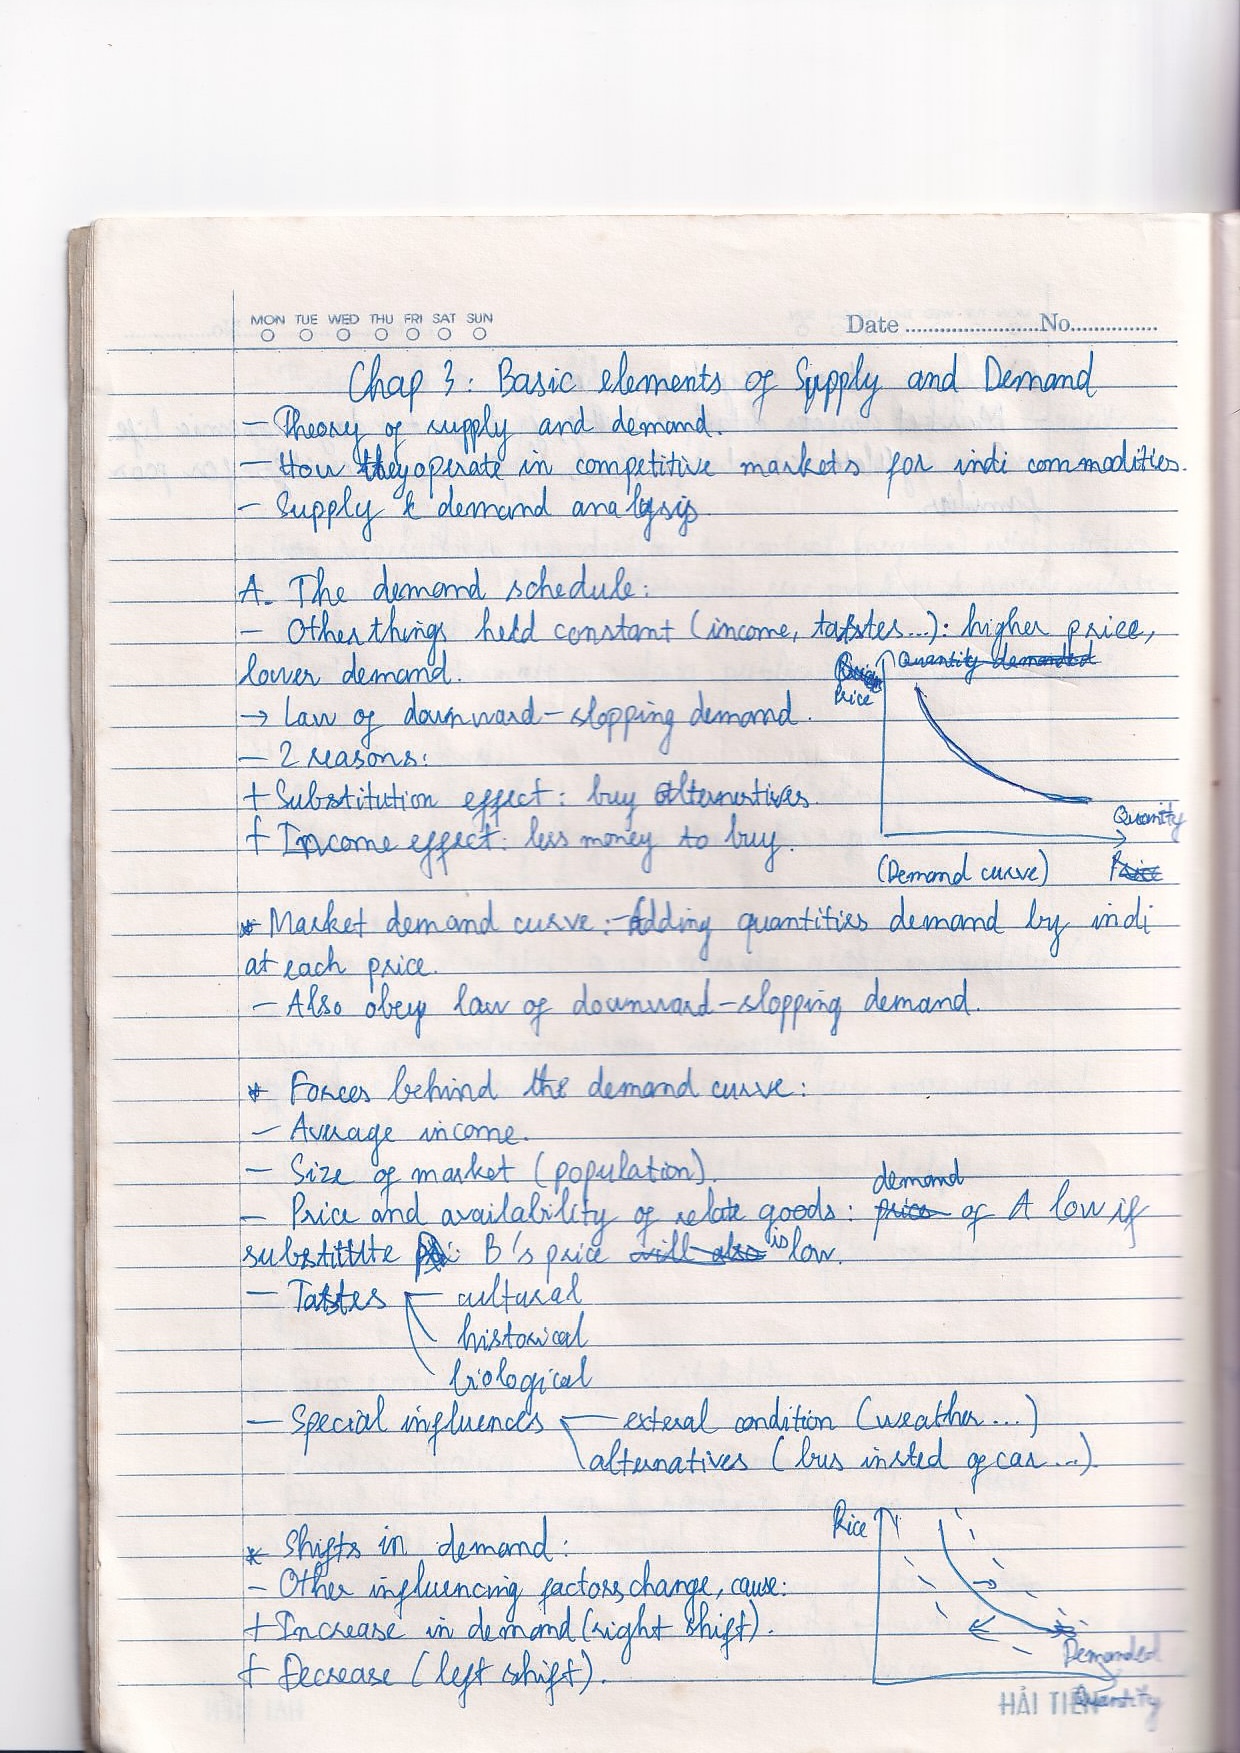 MON TUE WED THU FRI SAT SUN
Date ........................No................
Chap 3: Basic elements of Supply and Demand
- Theory of supply and demand.
- How they operate in competitive markets for indi commodities.
- Supply & demand analysis
A. The demand schedule:
- Other things held constant (income, tastes...): higher price,
lower demand.
Quantity demanded
Price
→ Law of downward-slopping demand.
- 2 reasons:
+ Substitution effect: buy alternatives.
+ Income effect: less money to buy.
Quantity
(Demand curve)
Price
* Market demand curve: - Adding quantities demand by indi
at each price.
- Also obey law of downward-slopping demand.
* Forces behind the demand curve:
- Average income.
- Size of market (population).
demand
- Price and availability of relate goods: price of A low if
substitute B's price will also is low.
- Tastes - cultural
historical
biological
- Special influences - exteral condition (weather...)
alternatives (bus insted of car...).
Price
* Shifts in demand:
- Other influencing factors change, cause:
+ Increase in demand (right shift).
+ Decrease (left shift).
Demanded
Quantity
HẢI TIẾN